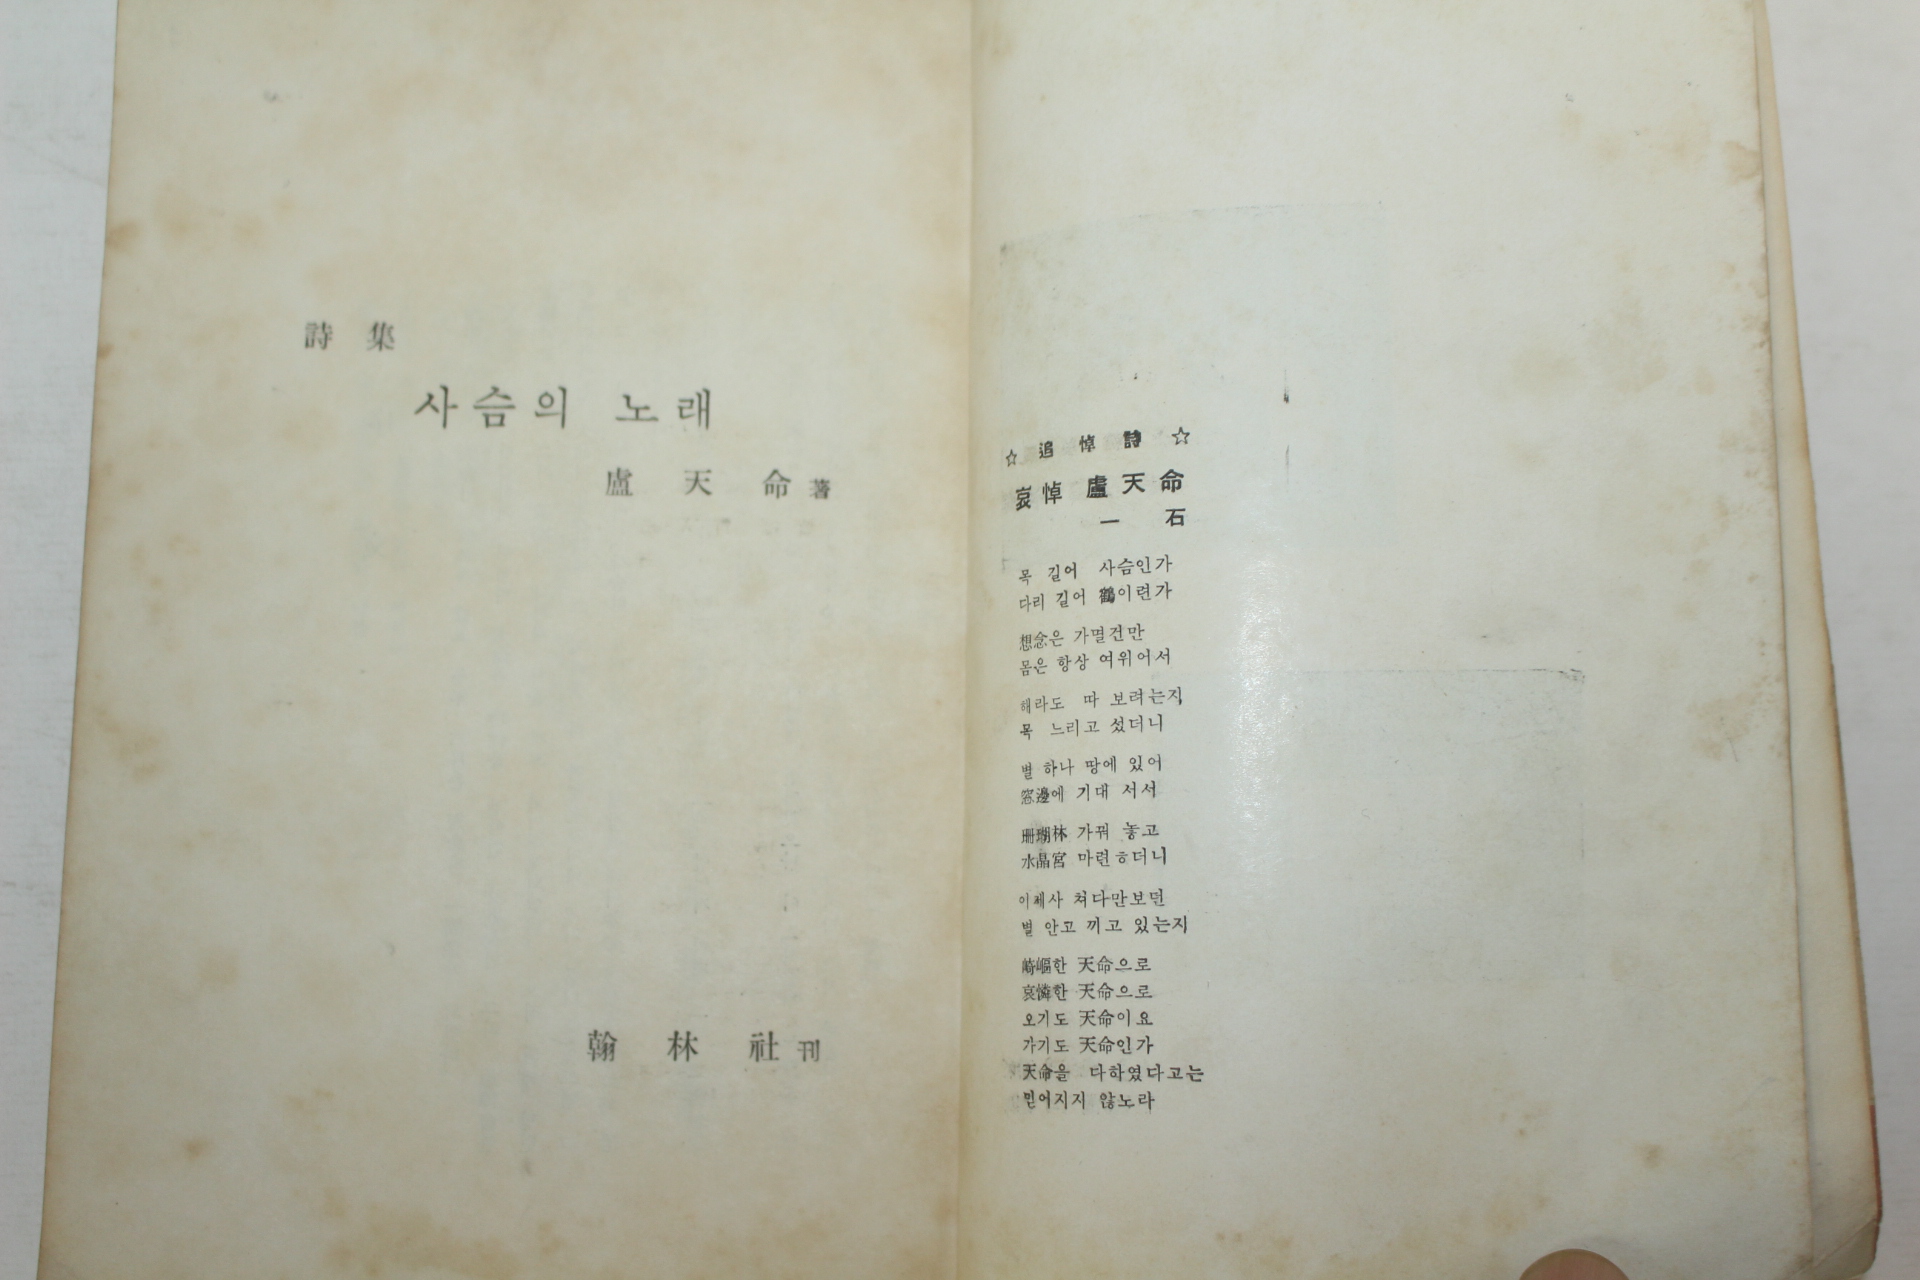 詩集
사슴의 노래
盧天命著
翰林社刊
☆追悼詩☆
哀悼 盧天命
一石
목 길어 사슴인가
다리 길어 鶴이련가
想念은 가멸건만
몸은 항상 여위어서
해라도 따 보려는지
목 느리고 섰더니
별 하나 땅에 있어
窓邊에 기대 서서
珊瑚林 가꿔 놓고
水晶宮 마련ㅎ더니
이제사 쳐다만보던
별 안고 끼고 있는지
崎嶇한 天命으로
哀憐한 天命으로
오기도 天命이요
가기도 天命인가
天命을 다하였다고는
믿어지지 않노라